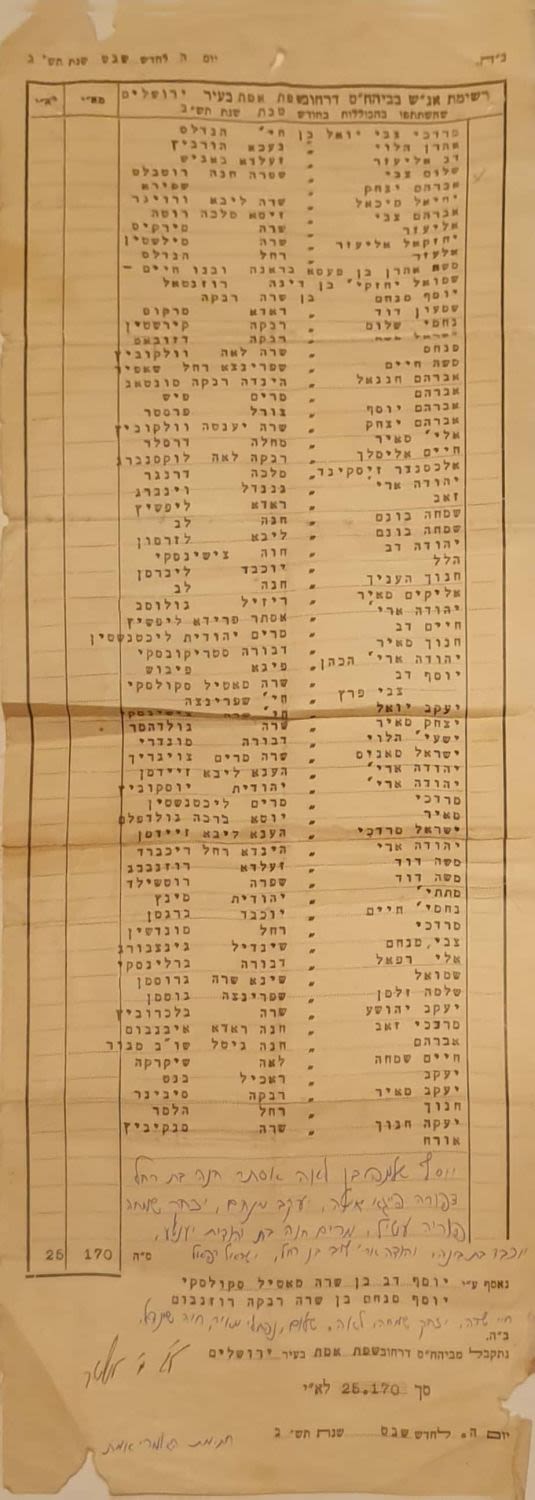 ב"ה.
יום ה לחדש שבט שנת תש"ב
רשימת אנ"ש בביהח"ס דרחוב שפת אמת בעיר ירושלים
מא"י לא"י
שהשתתפו בהכוללות בחודש טבת שנת תש"ב
מרדכי צבי יואל בן חי' הנדלס
אהרן הלוי " הורביץ
דב אליעזר " זעלדא באביש
שלום צבי " שפרה חנה רוטבלט
אברהם יצחק " שפירא
יחיאל מיכאל " שרה ליבא ורדיגר
אברהם צבי " זיסא מלכה רוטה
אליעזר " שרה מירקיס
יחזקאל אליעזר " שרה מילשטין
אלעזר " רחל הנדלס
משה אהרן בן פעסא בראנה ובנו חיים -
שמואל יחזקי' בן דינה רוזנטאל
יוסף מנחם בן שרה רבקה
שמעון דוד " דאדא מרקוס
נחמי' שלום " רבקה קירשטין
רבקה
מנחם " שרה לאה וולקוביץ
משה חיים " שפרינצא רחל
אברהם חננאל " הינדה רבקה מונטאג
אברהם " מרים פיש
אברהם יוסף " צורל פרסטר
אברהם יצחק " שרה יענטה וולקוביץ
אלי' מאיר " מחלה דרסלר
חיים אלימלך " רבקה לאה לוקסנברג
אלכסנדר זיסקינד " מלכה דרנגר
יהודה ארי' " גננדל וינברג
זאב " ראדא ליפשיץ
שמחה בונם " חנה לב
שמחה בונם " ליבא לזרסון
יהודה דב " חוה צישינסקי
הלל " יוכבד ליברמן
חנוך העניך " חנה לב
אליקים מאיר " רייזיל גולוסב
יהודה ארי' " אסתר פרידא ליפשיץ
חיים דב " מרים יהודית ליכטנשטין
חנוך מאיר " דבורה סטריקובסקי
יהודה ארי' הכהן " פיגא פיבוש
יוסף דב " שרה מאטיל סקולסקי
צבי פרץ " חי' שפרינצה
יעקב יואל " חי' שרה צישינסקי
יצחק מאיר " שרה גולדהמר
ישעי' הלוי " דבורה מונדרי
ישראל מאניס " שרה מרים צויגריך
יהודה ארי' " הענא ליבא זיידמן
יהודה ארי' " יהודית יוסקוביץ
מרדכי " מרים ליכטנשטין
מאיר " יוטא ברכה גולדפלם
ישראל מרדכי " הענא ליבא זיידמן
יהודה ארי' " הינדא רחל ריכברד
משה דוד " זעלדא רוזנברג
משה דוד " שפרה רוטשילד
מתתי' " יהודית מינץ
נחמי' חיים " יוכבד ברגמן
מרדכי " רחל מונדשין
צבי מנחם " שינדיל גינצבורג
אלי רפאל " דבורה ברלינסקי
שמואל " שינא שרה גרוסמן
שלמה זלמן " שפרינצה בוסמן
יעקב יהושע " שרה בלכרוביץ
מרדכי זאב " חנה ראדא איבנבוים
אברהם " חנה גיטל שו"ב מגור
חיים שמחה " לאה שיקרקה
יעקב " ראכיל בנט
יעקב מאיר " רבקה סיבינר
חנוך " רחל הלטר
יעקב חנוך " שרה מנקיביץ
אורח
יוסף בן לאה אסתר חנה בת רחל
צפורה פייגא יעקב מנחם, יצחק שמחה
מרים חנה בת יהודית יענטע,
בן רחל, ישראל רפאל
ס"ה 170 25
נאסף ע"י יוסף דב בן שרה מאטיל סקולסקי
יוסף מנחם בן שרה רבקה רוזנבום
חי' שרה, יצחק שמחה, לאה, שלום,
ב"ה.
נתקבל מביהח"ס דרחוב שפת אמת בעיר ירושלים
סך 25.170 לא"י
יום ה. לחדש שבט שנת תש"ב
חתימת